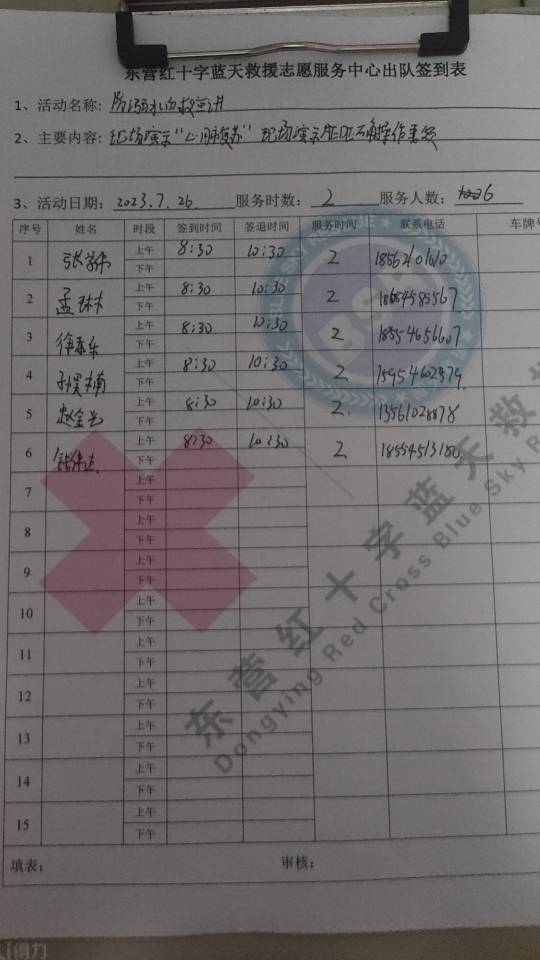 东营红十字蓝天救援志愿服务中心出队签到表
1、活动名称: 防溺水自救宣讲
2、主要内容: 现场演示"心肺复苏" 现场演示
3、活动日期: 2023.7.26 服务时数: 2 服务人数: 6
序号 姓名 时段 签到时间 签退时间 服务时间 联系电话 车牌号
1 上午 8:30 10:30 2
下午
2 孟 上午 8:30 10:30 2
下午
3 徐 上午 8:30 10:30 2 18554656607
下午
4 上午 8:30 10:30 2
下午
5 赵金光 上午 8:30 10:30 2. 13561028878
下午
6 上午 8:30 10:30 2 18554513180
下午
7 上午
下午
8 上午
下午
9 上午
下午
10 上午
下午
11 上午
下午
12 上午
下午
13 上午
下午
14 上午
下午
15 上午
下午
填表: 审核:
东营红十字蓝天救援
Dongying Red Cross Blue Sky R
BSR
得力